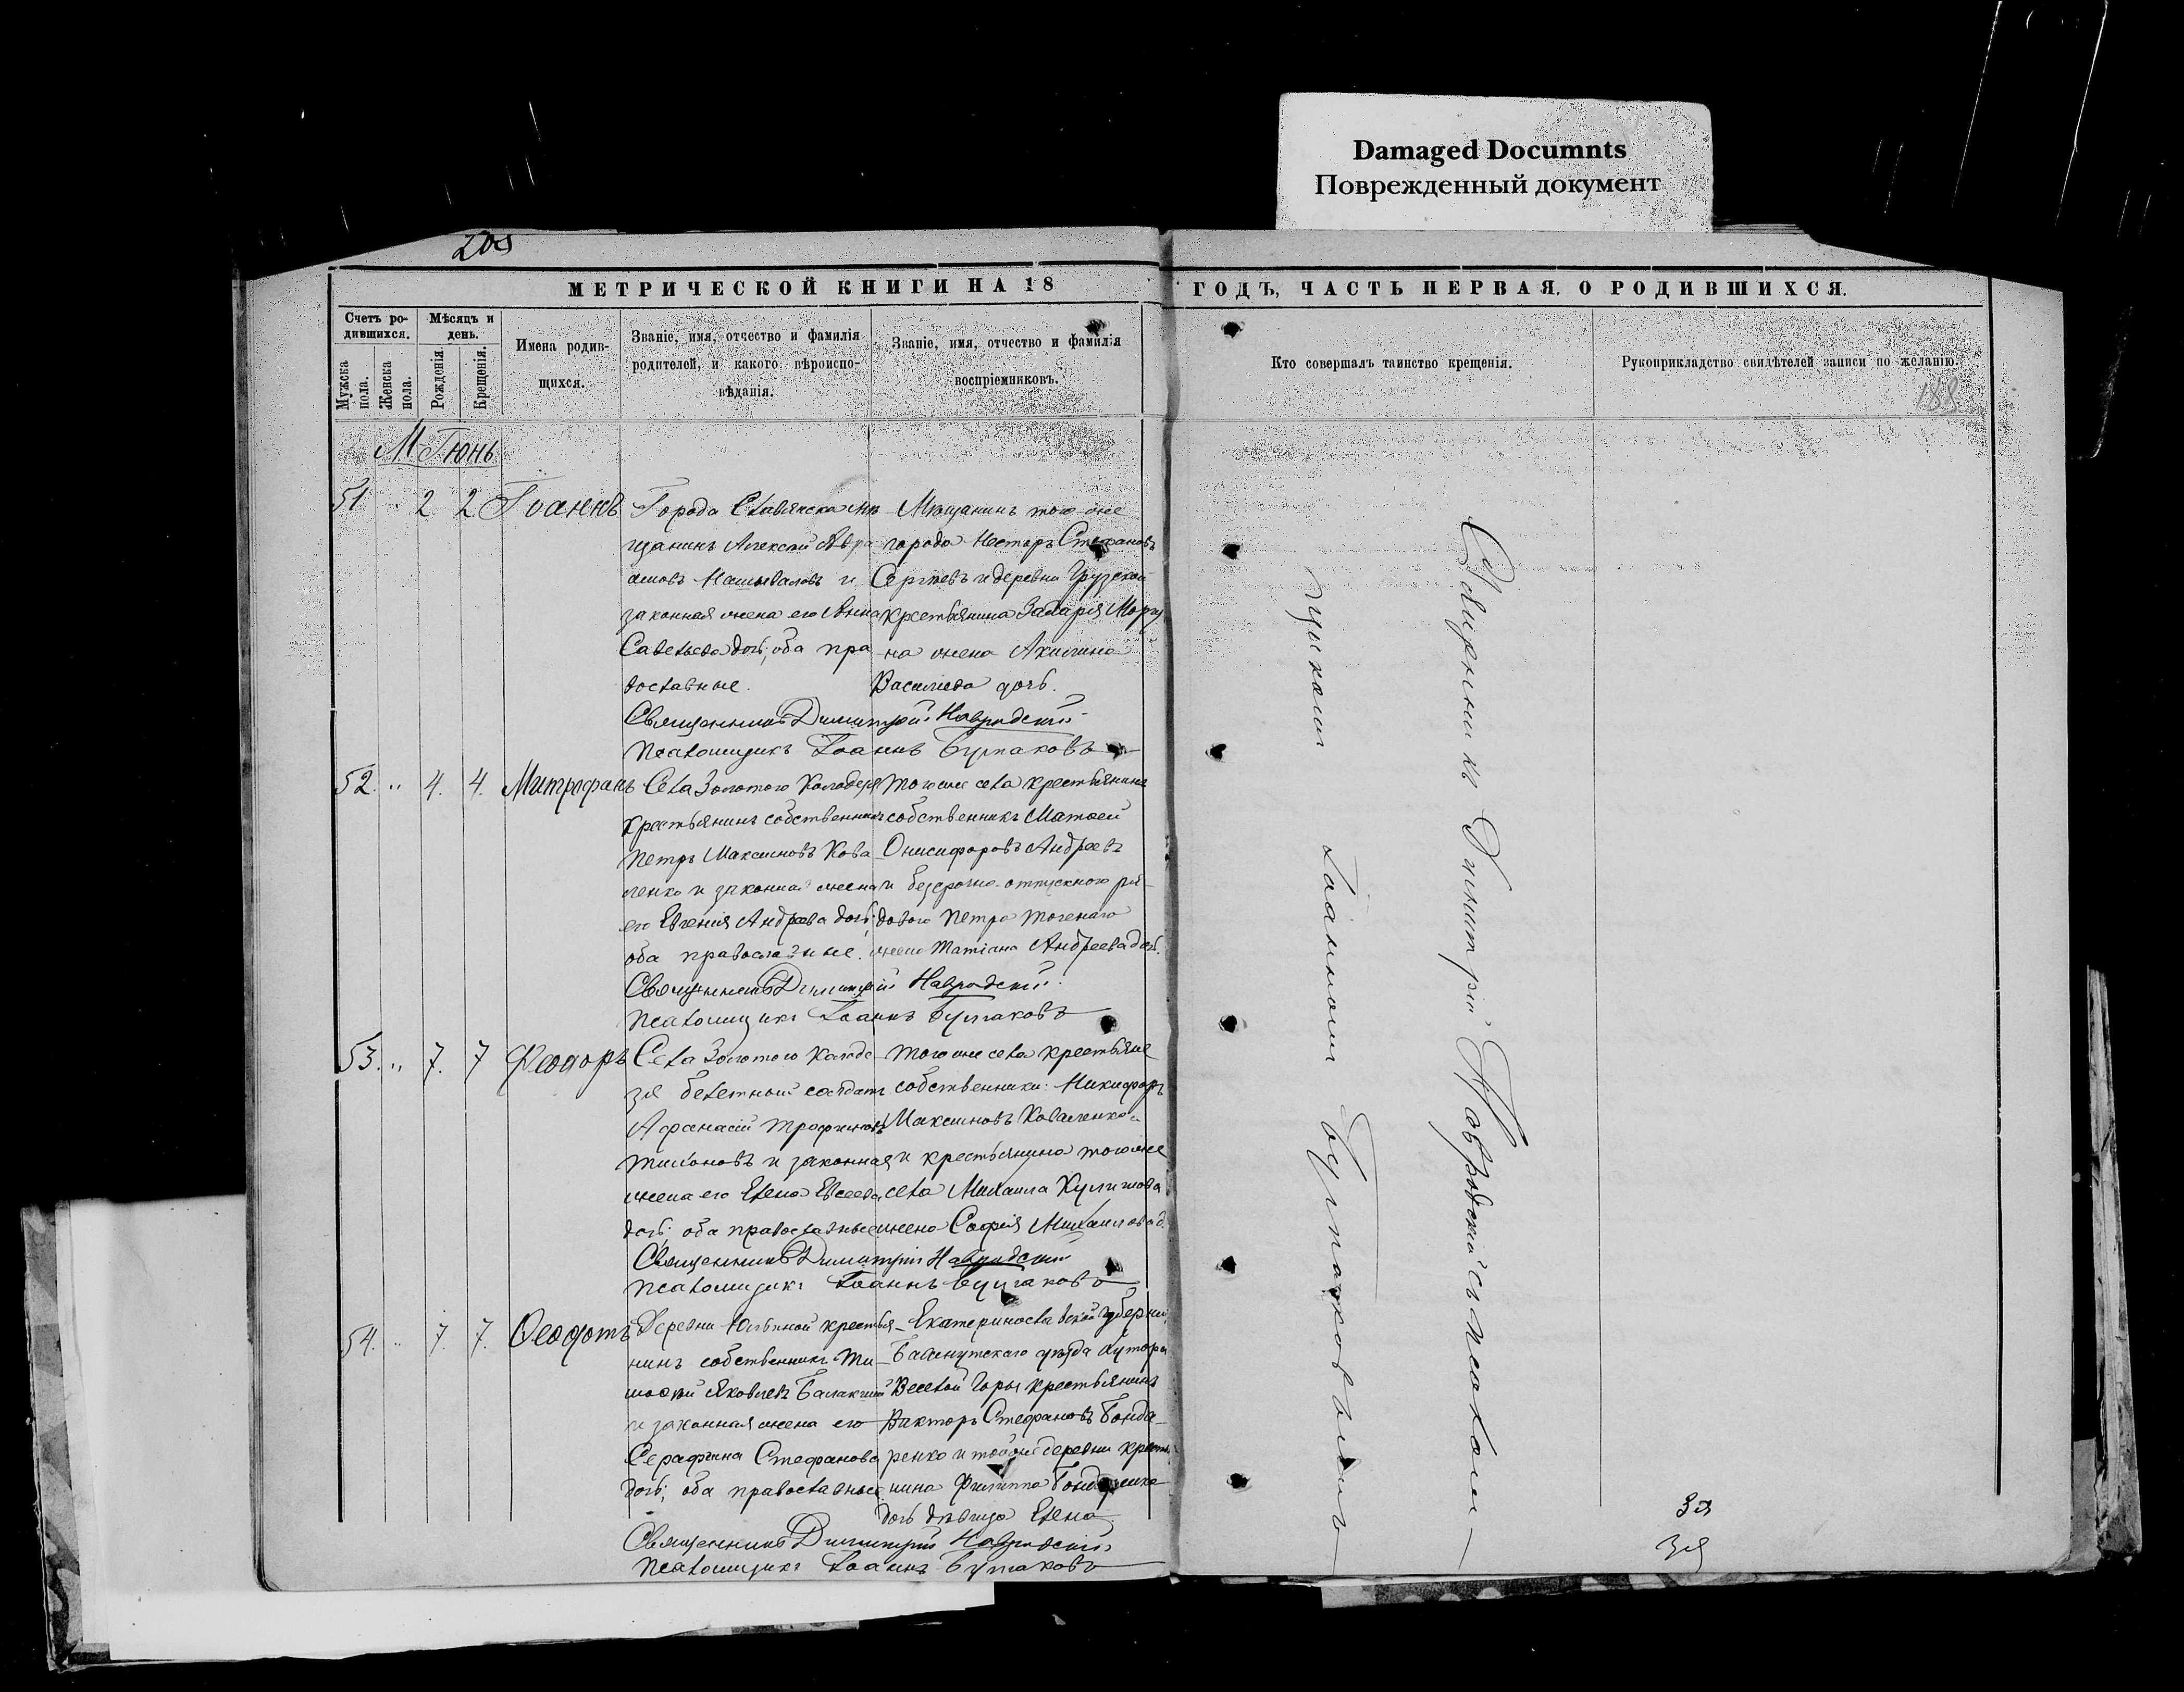 Damaged Documnts
Поврежденный документ
209
МЕТРИЧЕСКОЙ КНИГИ НА 18
ГОДЪ, ЧАСТЬ ПЕРВАЯ. О РОДИВШИХСЯ.
Счетъ ро-
дившихся.
Мужска
пола.
Женска
пола.
Мѣсяцъ и
день.
Рожденія.
Крещенія.
Имена родив-
щихся.
Званіе, имя, отчество и фамилія
родителей, и какого вѣроиспо-
вѣданія.
Званіе, имя, отчество и фамилія
воспріемниковъ.
Кто совершалъ таинство крещенія.
Рукоприкладство свидѣтелей записи по желанію.
188
М. Іюнь
51 " 2 2 Іоаннъ
Города Славянска мѣ
щанинъ Алексѣй Авра
амовъ и
законная жена его Анна
Савельева дочь; оба пра
вославные.
Мѣщанинъ того-же
города Несторъ Стефановъ
Сергѣевъ и деревни Грузской
крестьянина Захарія
на жена Акилина
Василіева дочь.
Священникъ Димитрій Навродскій
Псаломщикъ Іоаннъ Бурлаковъ
52. " 4. 4. Митрофанъ
Села Золотого Колодезя
крестьянинъ собственникъ
Петръ Максимовъ Кова
ленко и законная жена
его Евгенія Андреева дочь;
оба православные.
того же села крестьянинъ
собственникъ Матѳей
Онисифоровъ Андреевъ
и безсрочно-отпускного ря-
дового Петра
жена Татіана Андреева дочь.
Священникъ Димитрій Навродскій
Псаломщикъ Іоаннъ Бурлаковъ
53. " 7. 7 Ѳеодоръ
Села Золотого Колоде
зя билетный солдатъ
Афанасій Трофимовъ
и законная
жена его Елена Евсеева
дочь; оба православные
того же села крестьяне
собственники: Никифоръ
Максимовъ Коваленко
и крестьянина того же
села Михаила
жена Софія Михаилова д.
Священникъ Димитрій Навродскій
Псаломщикъ Іоаннъ Бурлаковъ
54. " 7. 7. Ѳеодотъ
Деревни крестья
нинъ собственникъ Ти
моѳей Яковлевъ
и законная жена его
Серафима Стефанова
дочь; оба православные
Екатеринославской губерніи,
Бахмутского уѣзда хутора
Веселой Горы крестьянинъ
Викторъ Стефановъ Бонда
ренко и той же деревни кресть
нина Филиппа Бондаренка
дочь дѣвица Елена.
Священникъ Димитрій Навродскій
Псаломщикъ Іоаннъ Бурлаковъ
Священникъ Димитрій Навродскій съ псалом
щикомъ Іоанномъ Бурлаковымъ
Зя
Зя